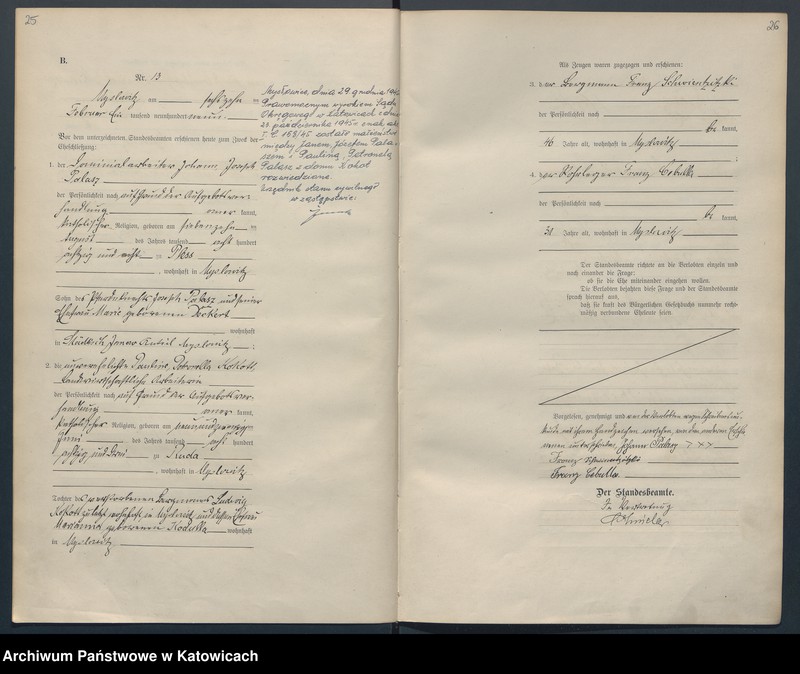 25
B.
Nr. 13
Myslowitz am sechszehn ten
Februar ein tausend neunhundert neun
Mysłowice, dnia 29. grudnia
Prawomocnym wyrokiem Sądu
Okręgowego w Katowicach z dnia
23. października 1945 r. znak akt
I. C. 168/45 zostało małżeństwo
między Janem, Józefem Pala-
szem i Pauliną, Petronelą
Palasz z domu Kokot
rozwiedzione.
Urzędnik stanu cywilnego
w zastępstwie:
Vor dem unterzeichneten Standesbeamten erschienen heute zum Zweck der
Eheschließung:
1. der Dominialarbeiter Johann Joseph
Palasz
der Persönlichkeit nach auf Grund der Aufgebotsver-
handlung aner kannt,
katholischer Religion, geboren am siebenzehn ten
August des Jahres tausend acht hundert
achtzig und acht zu Pless
, wohnhaft in Myslowitz
Sohn des Pferdeknechts Joseph Palasz und seiner
Ehefrau Marie geborenen Deckert
wohnhaft
in Städtisch Janow Anteil Myslowitz ;
2. die unverehelichte Pauline Petronella Kokott,
landwirtschaftliche Arbeiterin
der Persönlichkeit nach auf Grund der Aufgebotsver-
handlung aner kannt,
katholischer Religion, geboren am neunundzwanzig
Juni des Jahres tausend acht hundert
achtzig und drei zu Ruda
, wohnhaft in Myslowitz
Tochter des verstorbenen Bergmannes Ludwig
Kokott zuletzt wohnhaft in Myslowitz und dessen Ehefrau
Marianna geborenen Kodulka wohnhaft
in Myslowitz
26
Als Zeugen waren zugezogen und erschienen:
3. der Bergmann Franz Schwientzitzki
der Persönlichkeit nach
be kannt,
46 Jahre alt, wohnhaft in Myslowitz
;
4. der Rohrleger Franz Cebulla
der Persönlichkeit nach
be kannt,
31 Jahre alt, wohnhaft in Myslowitz
Der Standesbeamte richtete an die Verlobten einzeln und
nach einander die Frage:
ob sie die Ehe miteinander eingehen wollen.
Die Verlobten bejahten diese Frage und der Standesbeamte
sprach hierauf aus,
daß sie kraft des Bürgerlichen Gesetzbuchs nunmehr recht-
mäßig verbundene Eheleute seien.
Vorgelesen, genehmigt und von der Verlobten wegen Schreibensun-
kunde mit ihrem Handzeichen versehen, von den anderen Erschie-
nenen unterschrieben. Johann Palasz + × +
Franz Schwientzitzki
Franz Cebulla
Der Standesbeamte.
In Vertretung
Chmiela
Archiwum Państwowe w Katowicach